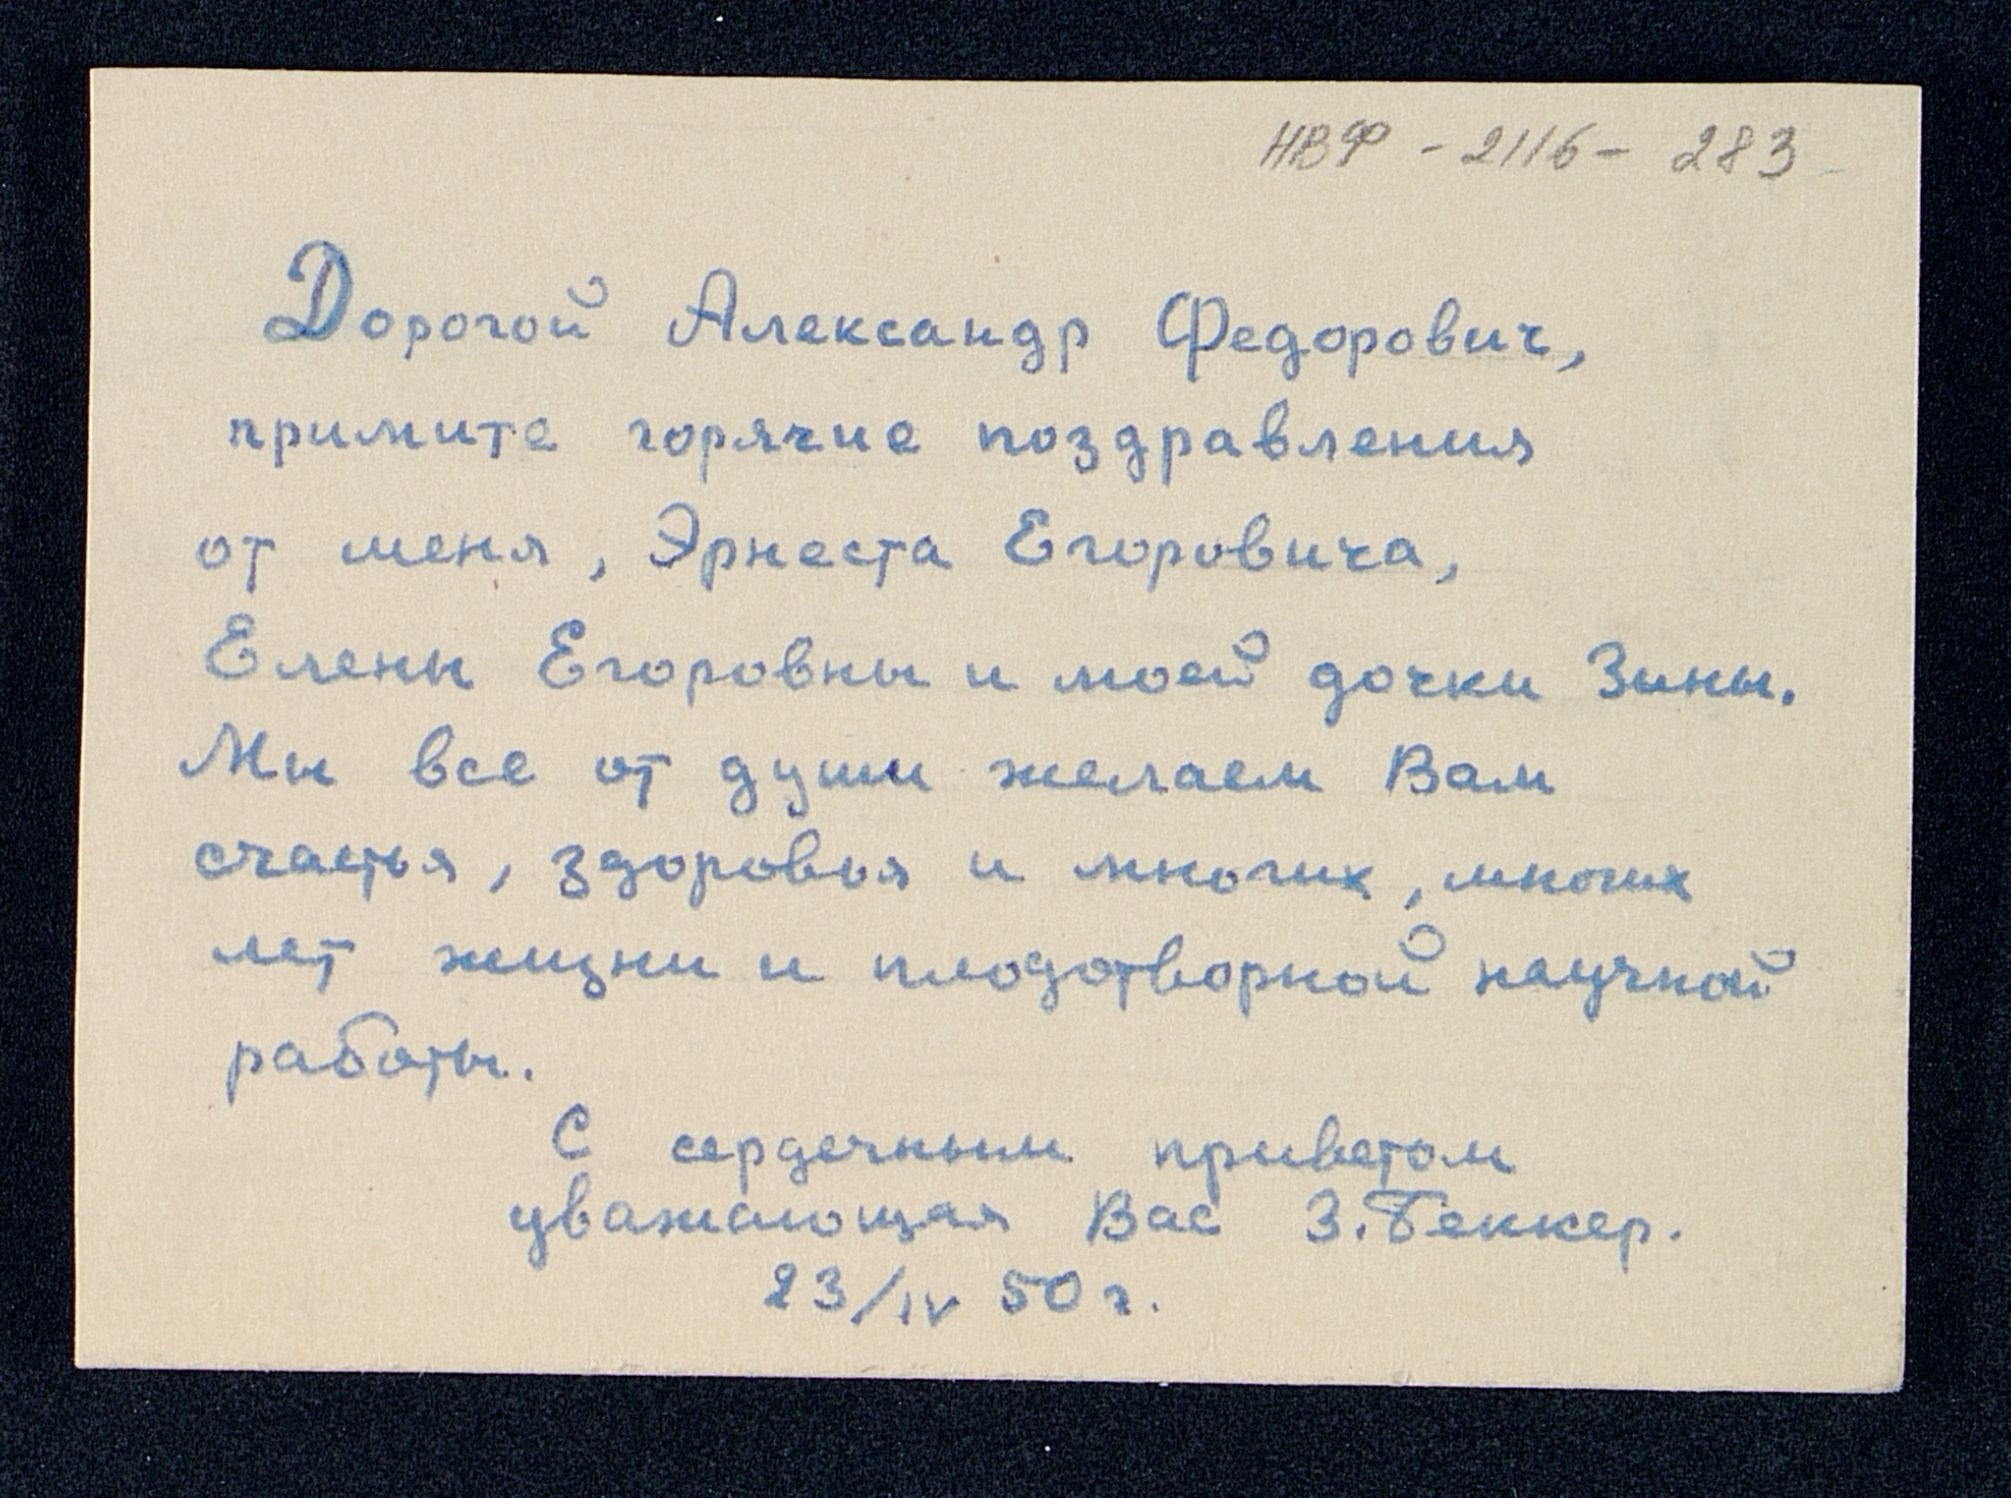 НВФ - 2116 - 283
Дорогой Александр Федорович,
примите горячие поздравления
от меня, Эрнеста Егоровича,
Елены Егоровны и моей дочки Зины.
Мы все от души желаем Вам
счастья, здоровья и многих, многих
лет жизни и плодотворной научной
работы.
С сердечным приветом
уважающая Вас З. Беккер.
23/IV 50 г.